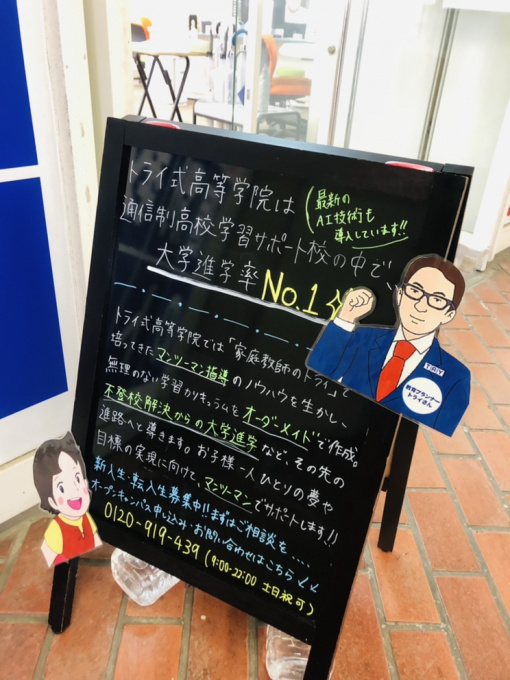 トライ式高等学院は
通信制高校学習サポート校の中で、
大学進学率 No.1
最新の
AI技術も
導入しています!!
トライ式高等学院では「家庭教師のトライ」で
培ってきたマンツーマン指導のノウハウを生かし、
無理のない学習カリキュラムをオーダーメイドで作成。
不登校解決からの大学進学など、その先の
進路へと導きます。お子様一人ひとりの夢や
目標の実現に向けて、マンツーマンでサポートします!!
新入生・転入生募集中!!まずはご相談を……
オープンキャンパス申し込み・お問い合わせはこちら↙↙
0120-919-439 (9:00-22:00 土日祝可)
TRY
教育プランナー
トライさん